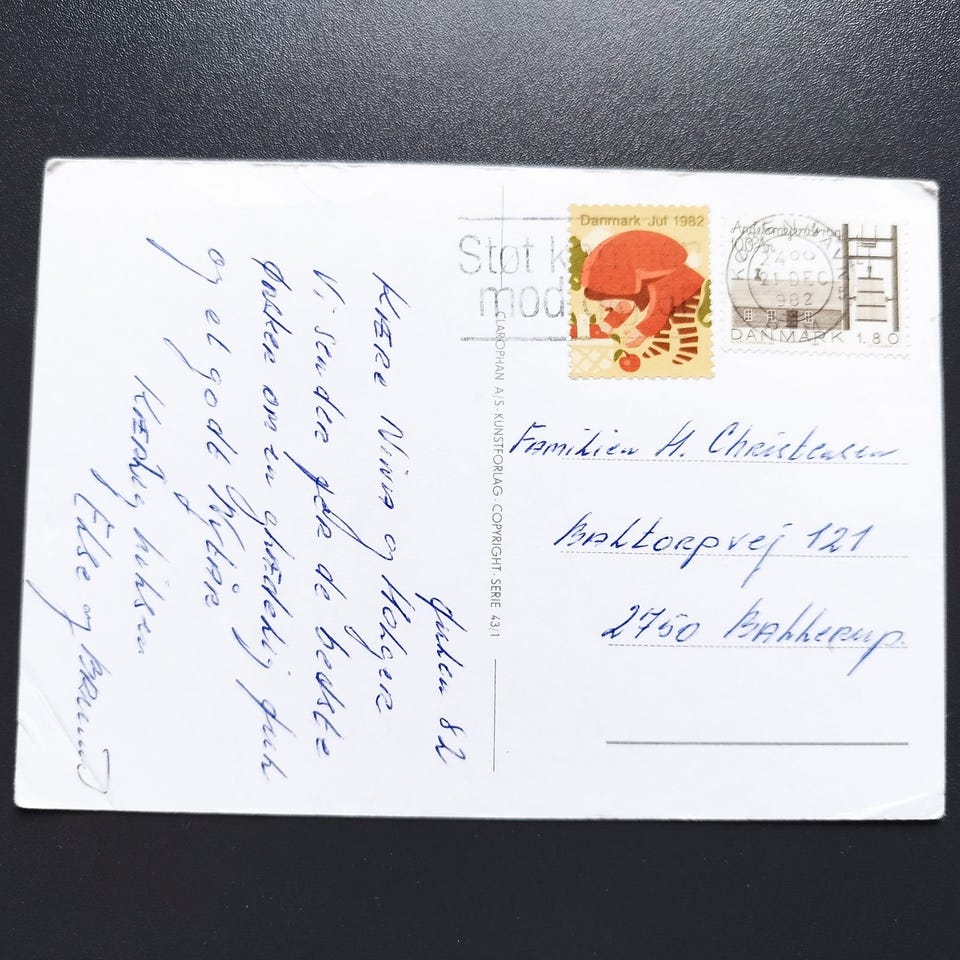 Julen 82
Kære Nina og Holger
Vi sender jer de bedste
ønsker om en glædelig jul
og et godt Nytår
Kærlig hilsen
Else og
CLAROPHAN A/S · KUNSTFORLAG · COPYRIGHT · SERIE 43/1
Støt
mod
Danmark Jul 1982
Andelsmejeribrug
100 År
KØBENHAVN
21 DEC
1982
DANMARK 1.80
Familien H. Christensen
Baltorpvej 121
2750 Ballerup.